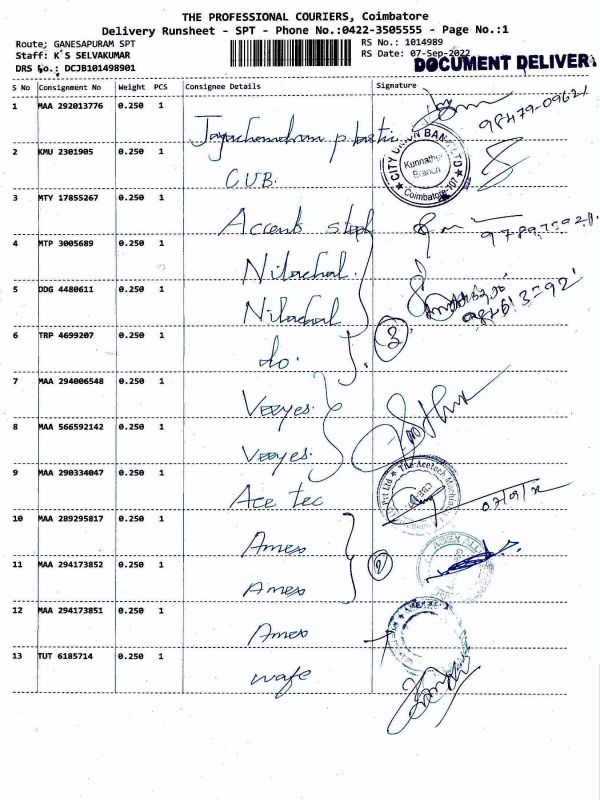 THE PROFESSIONAL COURIERS, Coimbatore
Delivery Runsheet - SPT - Phone No.:0422-3505555 - Page No.:1
Route; GANESAPURAM SPT
RS No.: 1014989
Staff: K S SELVAKUMAR
RS Date: 07-Sep-2022
DRS No.: DCJB101498901
DOCUMENT DELIVER
S No Consignment No Weight PCS Consignee Details Signature
1 MAA 292013776 0.250 1
2 KMU 2301905 0.250 1 CUB.
CITY UNION BANK LTD
Kunnathur Branch
Coimbatore-107
3 MTY 17855267 0.250 1
4 MTP 3005689 0.250 1 Nilachal.
5 DDG 4480611 0.250 1 Nilachal
3
6 TRP 4699207 0.250 1 do.
7 MAA 294006548 0.250 1 Veeyes.
8 MAA 566592142 0.250 1 Veeyes.
9 MAA 290334047 0.250 1 Ace tec
10 MAA 289295817 0.250 1 Amex
11 MAA 294173852 0.250 1 Amex
2
12 MAA 294173851 0.250 1 Amex
13 TUT 6185714 0.250 1